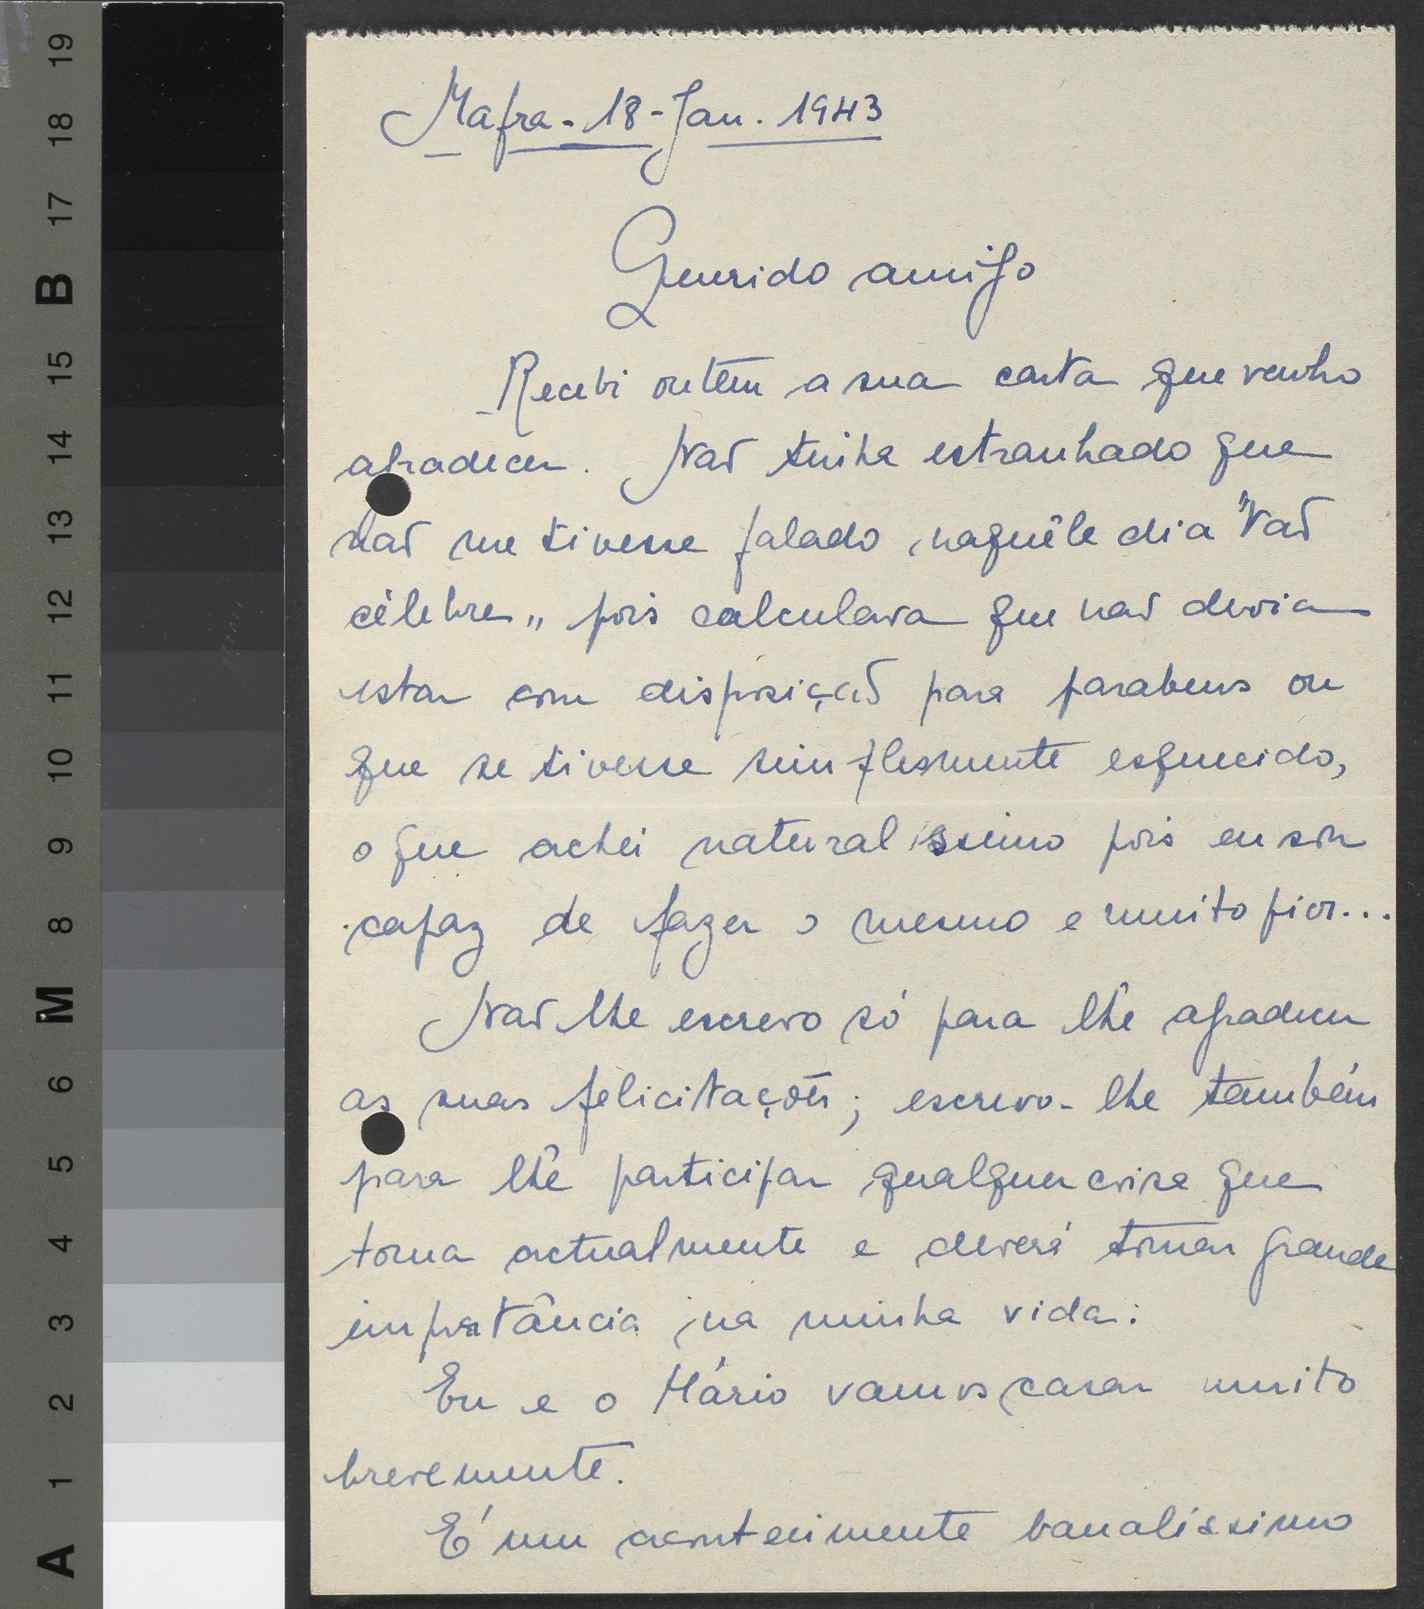 Mafra - 18 - Jan. 1943
Querido amigo
Recebi ontem a sua carta que venho
agradecer. Não tinha estranhado que
não me tivesse falado, naquêle dia "tão
célebre", pois calculava que não devia
estar com disposição para parabens ou
que se tivesse simplesmente esquecido,
o que achei naturalissimo pois eu sou
capaz de fazer o mesmo e muito pior...
Não lhe escrevo só para lhe agradecer
as suas felicitações; escrevo-lhe também
para lhe participar qualquer coisa que
toma actualmente e deverá tomar grande
importância na minha vida:
Eu e o Mário vamos casar muito
brevemente.
É um acontecimento banalissimo
19
18
17
B
15
14
13
12
11
10
9
8
M
6
5
4
3
2
1
A